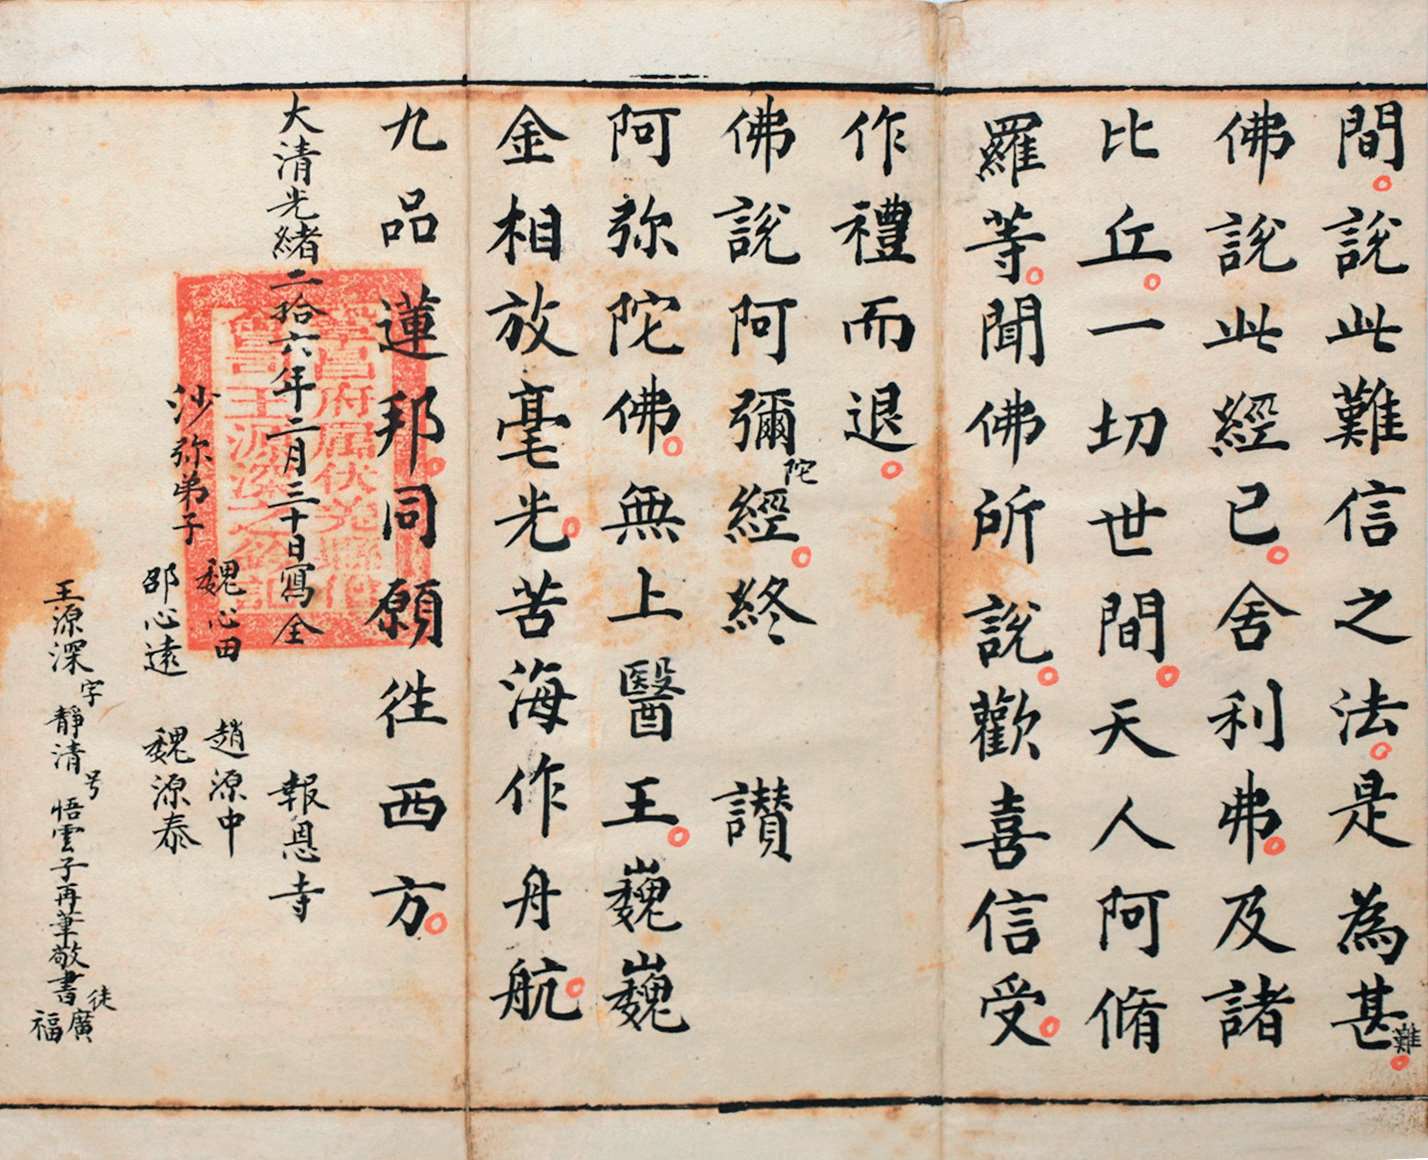 間。說此難信之法。是為甚難。
佛說此經已。舍利弗。及諸
比丘。一切世間。天人阿脩
羅等。聞佛所說。歡喜信受。
作禮而退。
佛說阿彌陀經。終　讚
阿弥陀佛。無上醫王。巍巍
金相放毫光。苦海作舟航。
九品蓮邦。同願往西方。
大清光緒二拾六年二月三十日寫全　報恩寺
沙弥弟子　魏心田　趙源中
邵心遠　魏源泰
王源深字靜清号悟雲子再筆敬書徒廣福
府屬伏羌縣僧
會王源深之